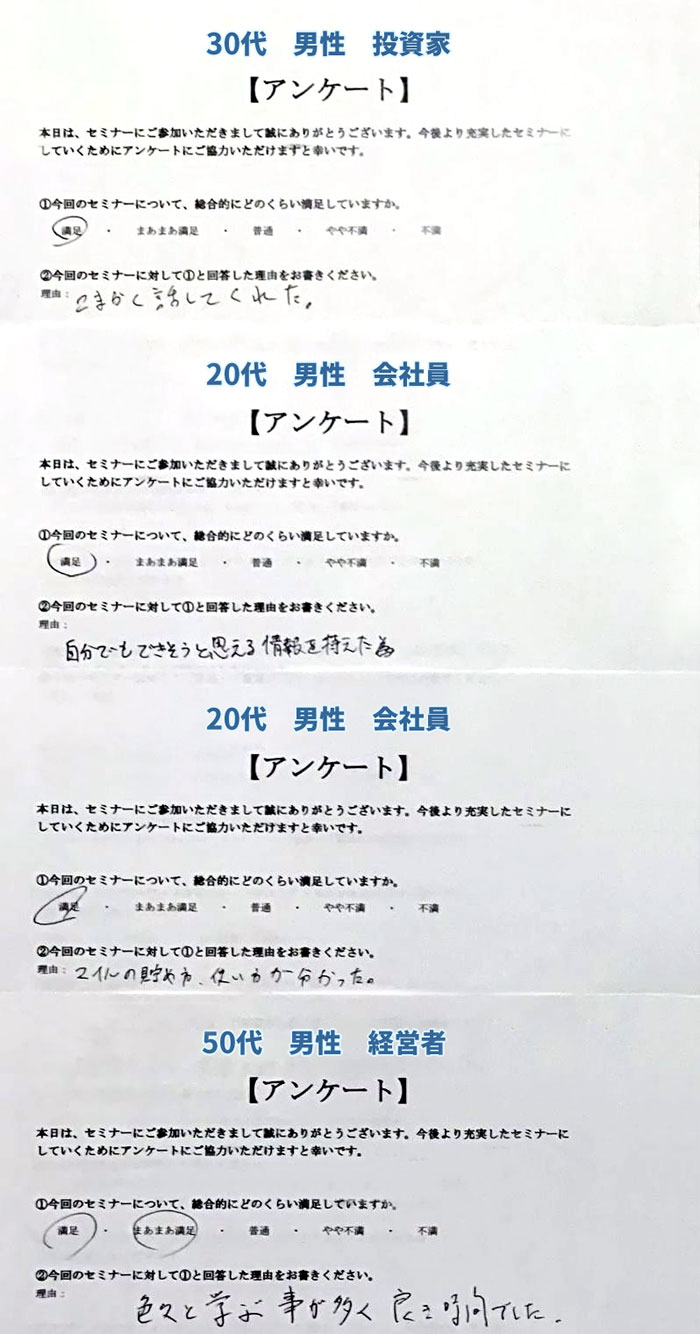 30代 男性 投資家
【アンケート】
本日は、セミナーにご参加いただきまして誠にありがとうございます。今後より充実したセミナーに
していくためにアンケートにご協力いただけますと幸いです。
①今回のセミナーについて、総合的にどのくらい満足していますか。
満足 ・ まあまあ満足 ・ 普通 ・ やや不満 ・ 不満
②今回のセミナーに対して①と回答した理由をお書きください。
理由： こまかく話してくれた。
20代 男性 会社員
【アンケート】
本日は、セミナーにご参加いただきまして誠にありがとうございます。今後より充実したセミナーに
していくためにアンケートにご協力いただけますと幸いです。
①今回のセミナーについて、総合的にどのくらい満足していますか。
満足 ・ まあまあ満足 ・ 普通 ・ やや不満 ・ 不満
②今回のセミナーに対して①と回答した理由をお書きください。
理由：
自分でもできそうと思える情報を持えた為
20代 男性 会社員
【アンケート】
本日は、セミナーにご参加いただきまして誠にありがとうございます。今後より充実したセミナーに
していくためにアンケートにご協力いただけますと幸いです。
①今回のセミナーについて、総合的にどのくらい満足していますか。
満足 ・ まあまあ満足 ・ 普通 ・ やや不満 ・ 不満
②今回のセミナーに対して①と回答した理由をお書きください。
理由： マイルの貯め方、使い方が分かった。
50代 男性 経営者
【アンケート】
本日は、セミナーにご参加いただきまして誠にありがとうございます。今後より充実したセミナーに
していくためにアンケートにご協力いただけますと幸いです。
①今回のセミナーについて、総合的にどのくらい満足していますか。
満足 ・ まあまあ満足 ・ 普通 ・ やや不満 ・ 不満
②今回のセミナーに対して①と回答した理由をお書きください。
理由：
色々と学ぶ事が多く良き時間でした.